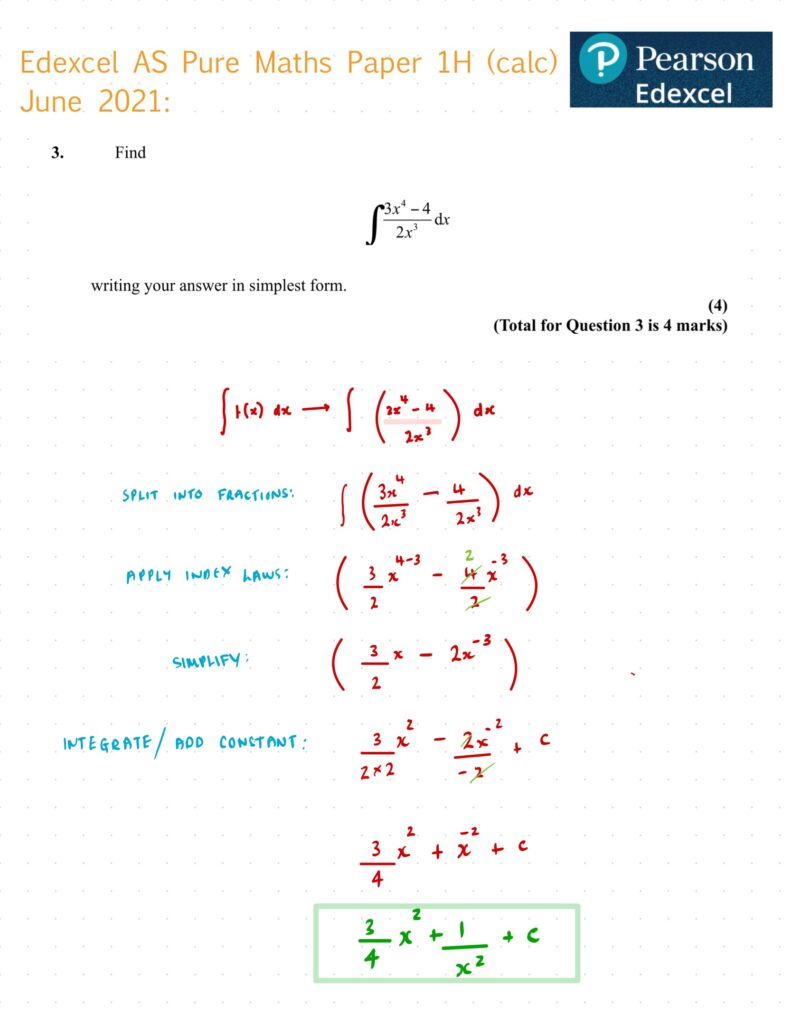 Edexcel AS Pure Maths Paper 1H (calc)
June 2021:
Pearson
Edexcel
3. Find
∫ (3x⁴ − 4)/(2x³) dx
writing your answer in simplest form.
(4)
(Total for Question 3 is 4 marks)
∫ f(x) dx → ∫ ((3x⁴ − 4)/(2x³)) dx
SPLIT INTO FRACTIONS: ∫ (3x⁴/2x³ − 4/2x³) dx
APPLY INDEX LAWS: (3/2 x⁴⁻³ − 4/2 x⁻³) 2
SIMPLIFY: (3/2 x − 2x⁻³)
INTEGRATE/ ADD CONSTANT: 3/(2×2) x² − 2x⁻²/−2 + c
3/4 x² + x⁻² + c
3/4 x² + 1/x² + c